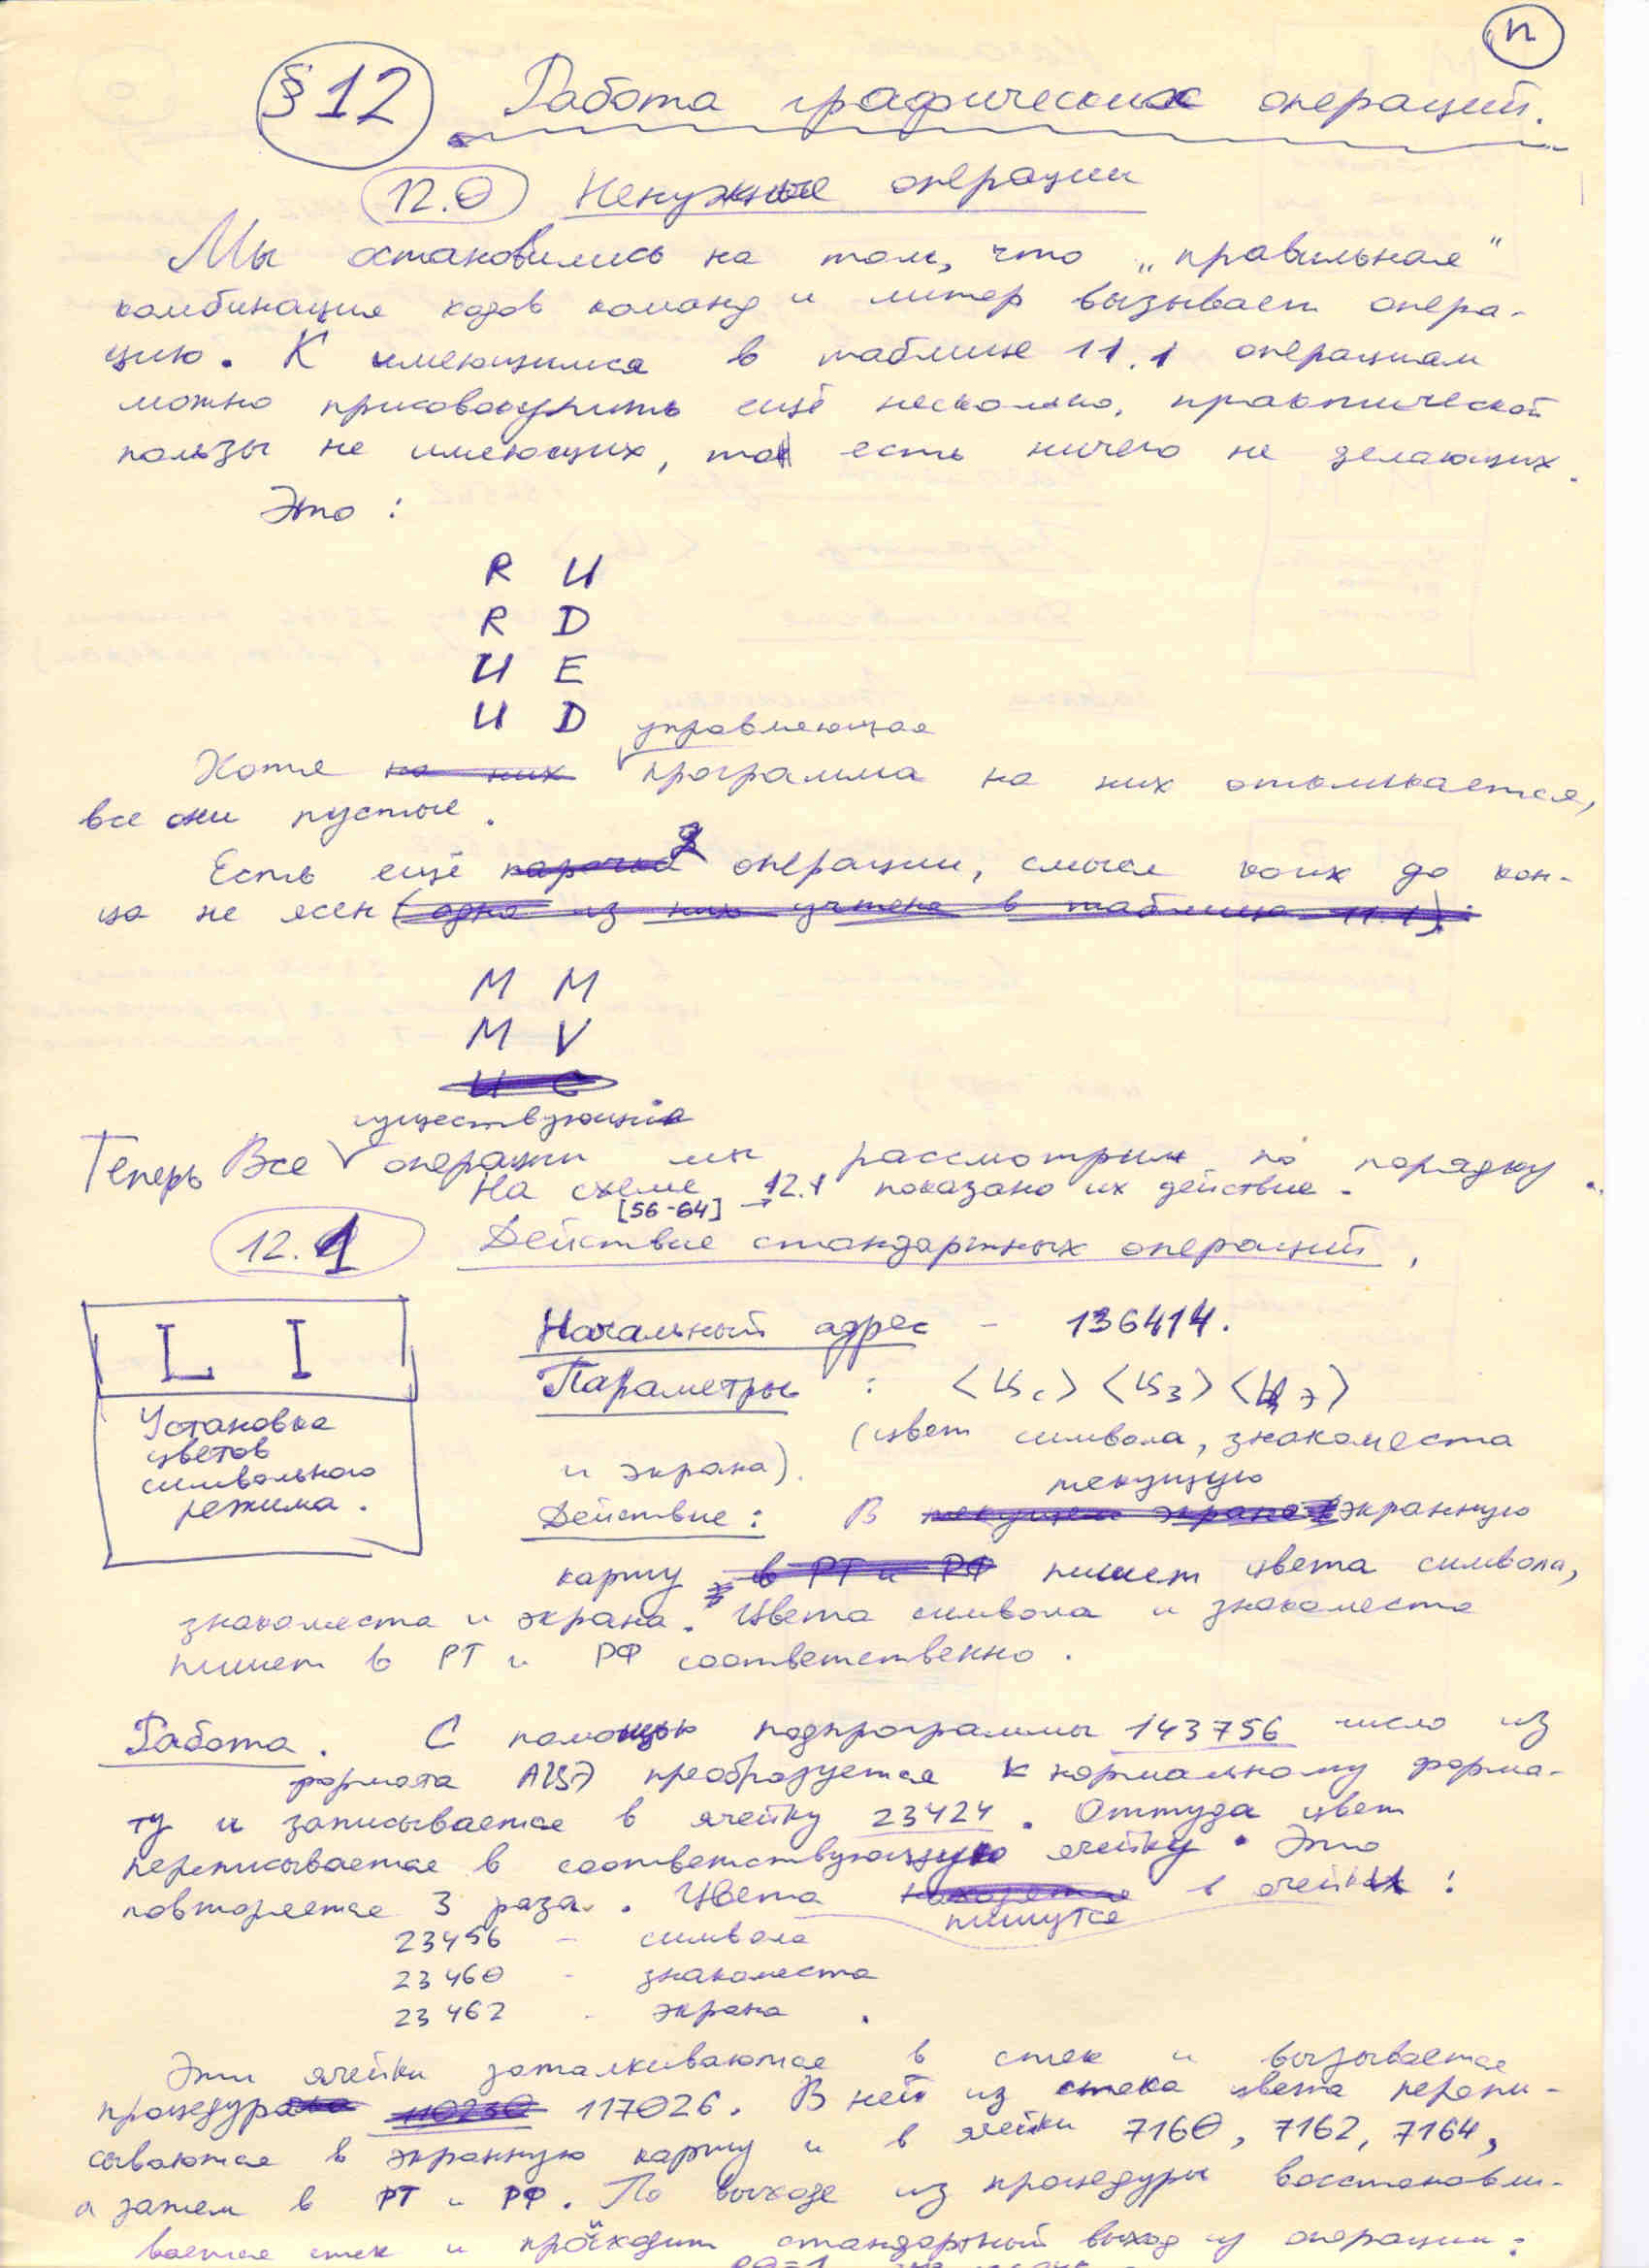 п
§12 Работа графических операций.
12.0 Ненужные операции
Мы остановились на том, что „правильная"
комбинация кодов команд и литер вызывает опера-
цию. К имеющимся в таблице 11.1 операциям
можно присовокупить ещё несколько, практической
пользы не имеющих, то есть ничего не делающих.
Это :
R U
R D
U E
U D
управляющая
Хотя на них программа на них откликается,
все они пустые.
Есть ещё парочка 2 операции, смысл коих до кон-
ца не ясен (одна из них учтена в таблице 11.1):
M M
M V
U C
существующие
Теперь Все операции мы рассмотрим по порядку.
На схеме 12.1 показано их действие.
[56-64] →
12.1 Действие стандартных операций.
L I
Установка
цветов
символьного
режима.
Начальный адрес - 136414.
Параметры : <Цс> <Цз> <Цэ>
(цвет символа, знакоместа
и экрана).
текущую
Действие: В текущем экране экранную
карту в РТ и РФ пишет цвета символа,
знакоместа и экрана. Цвета символа и знакоместа
пишет в РТ и РФ соответственно.
Работа. С помощью подпрограммы 143756 число из
формата АЦД преобразуется к нормальному форма-
ту и записывается в ячейку 23424. Оттуда цвет
переписывается в соответствующую ячейку. Это
повторяется 3 раза. Цвета находятся в ячейках :
пишутся
23456 - символа
23460 - знакоместа
23462 - экрана.
Эти ячейки заталкиваются в стек и вызывается
процедура 117026. В ней из стека цвета перепи-
сываются в экранную карту и в ячейки 7160, 7162, 7164,
а затем в РТ и РФ. По выходе из процедуры восстанавли-
вается стек и происходит стандартный выход из операции: